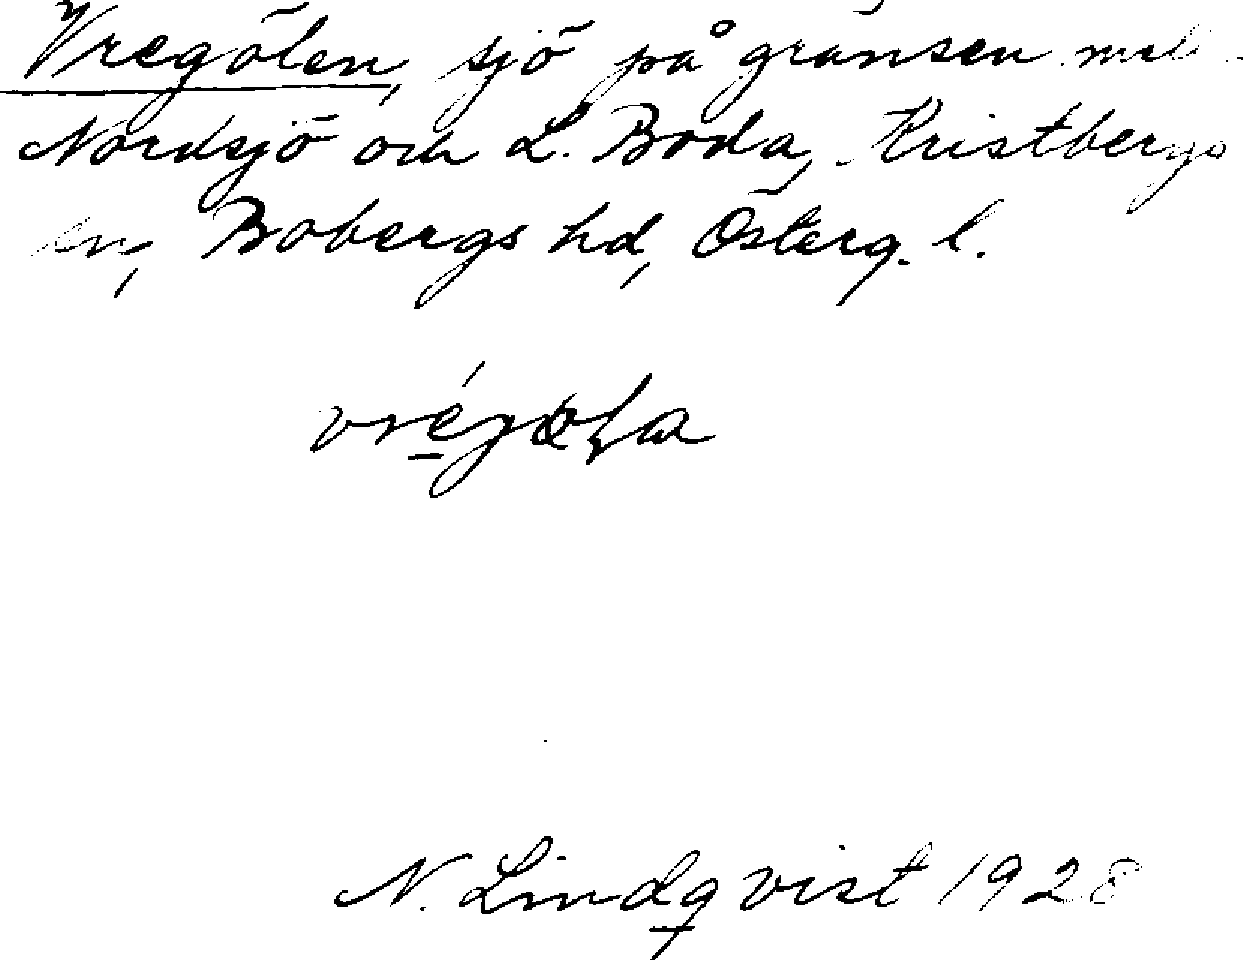 Vregölen, sjö på gränsen mel
Nordsjö och L. Boda, Kristbergs
sn, Bobergs hd, Österg. l.
N. Lindqvist 1928